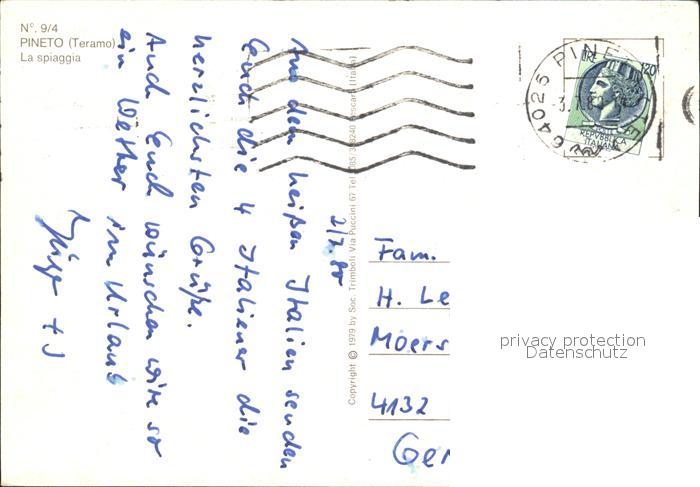 N°. 9/4
PINETO (Teramo)
La spiaggia
2/7.80
Aus dem heißen Italien senden
Euch die 4 Italiener die
herzlichsten Grüße.
Auch Euch wünschen wir so
ein Wetter im Urlaub
+
Copyright © 1979 by Soc. Trimboli Via Puccini 67 Tel.
Pescara (Italy)
64025 PINETO
LIRE 120
REPUBBLICA
ITALIANA
Fam.
H. Le
Moers
4132
Ger
privacy protection
Datenschutz